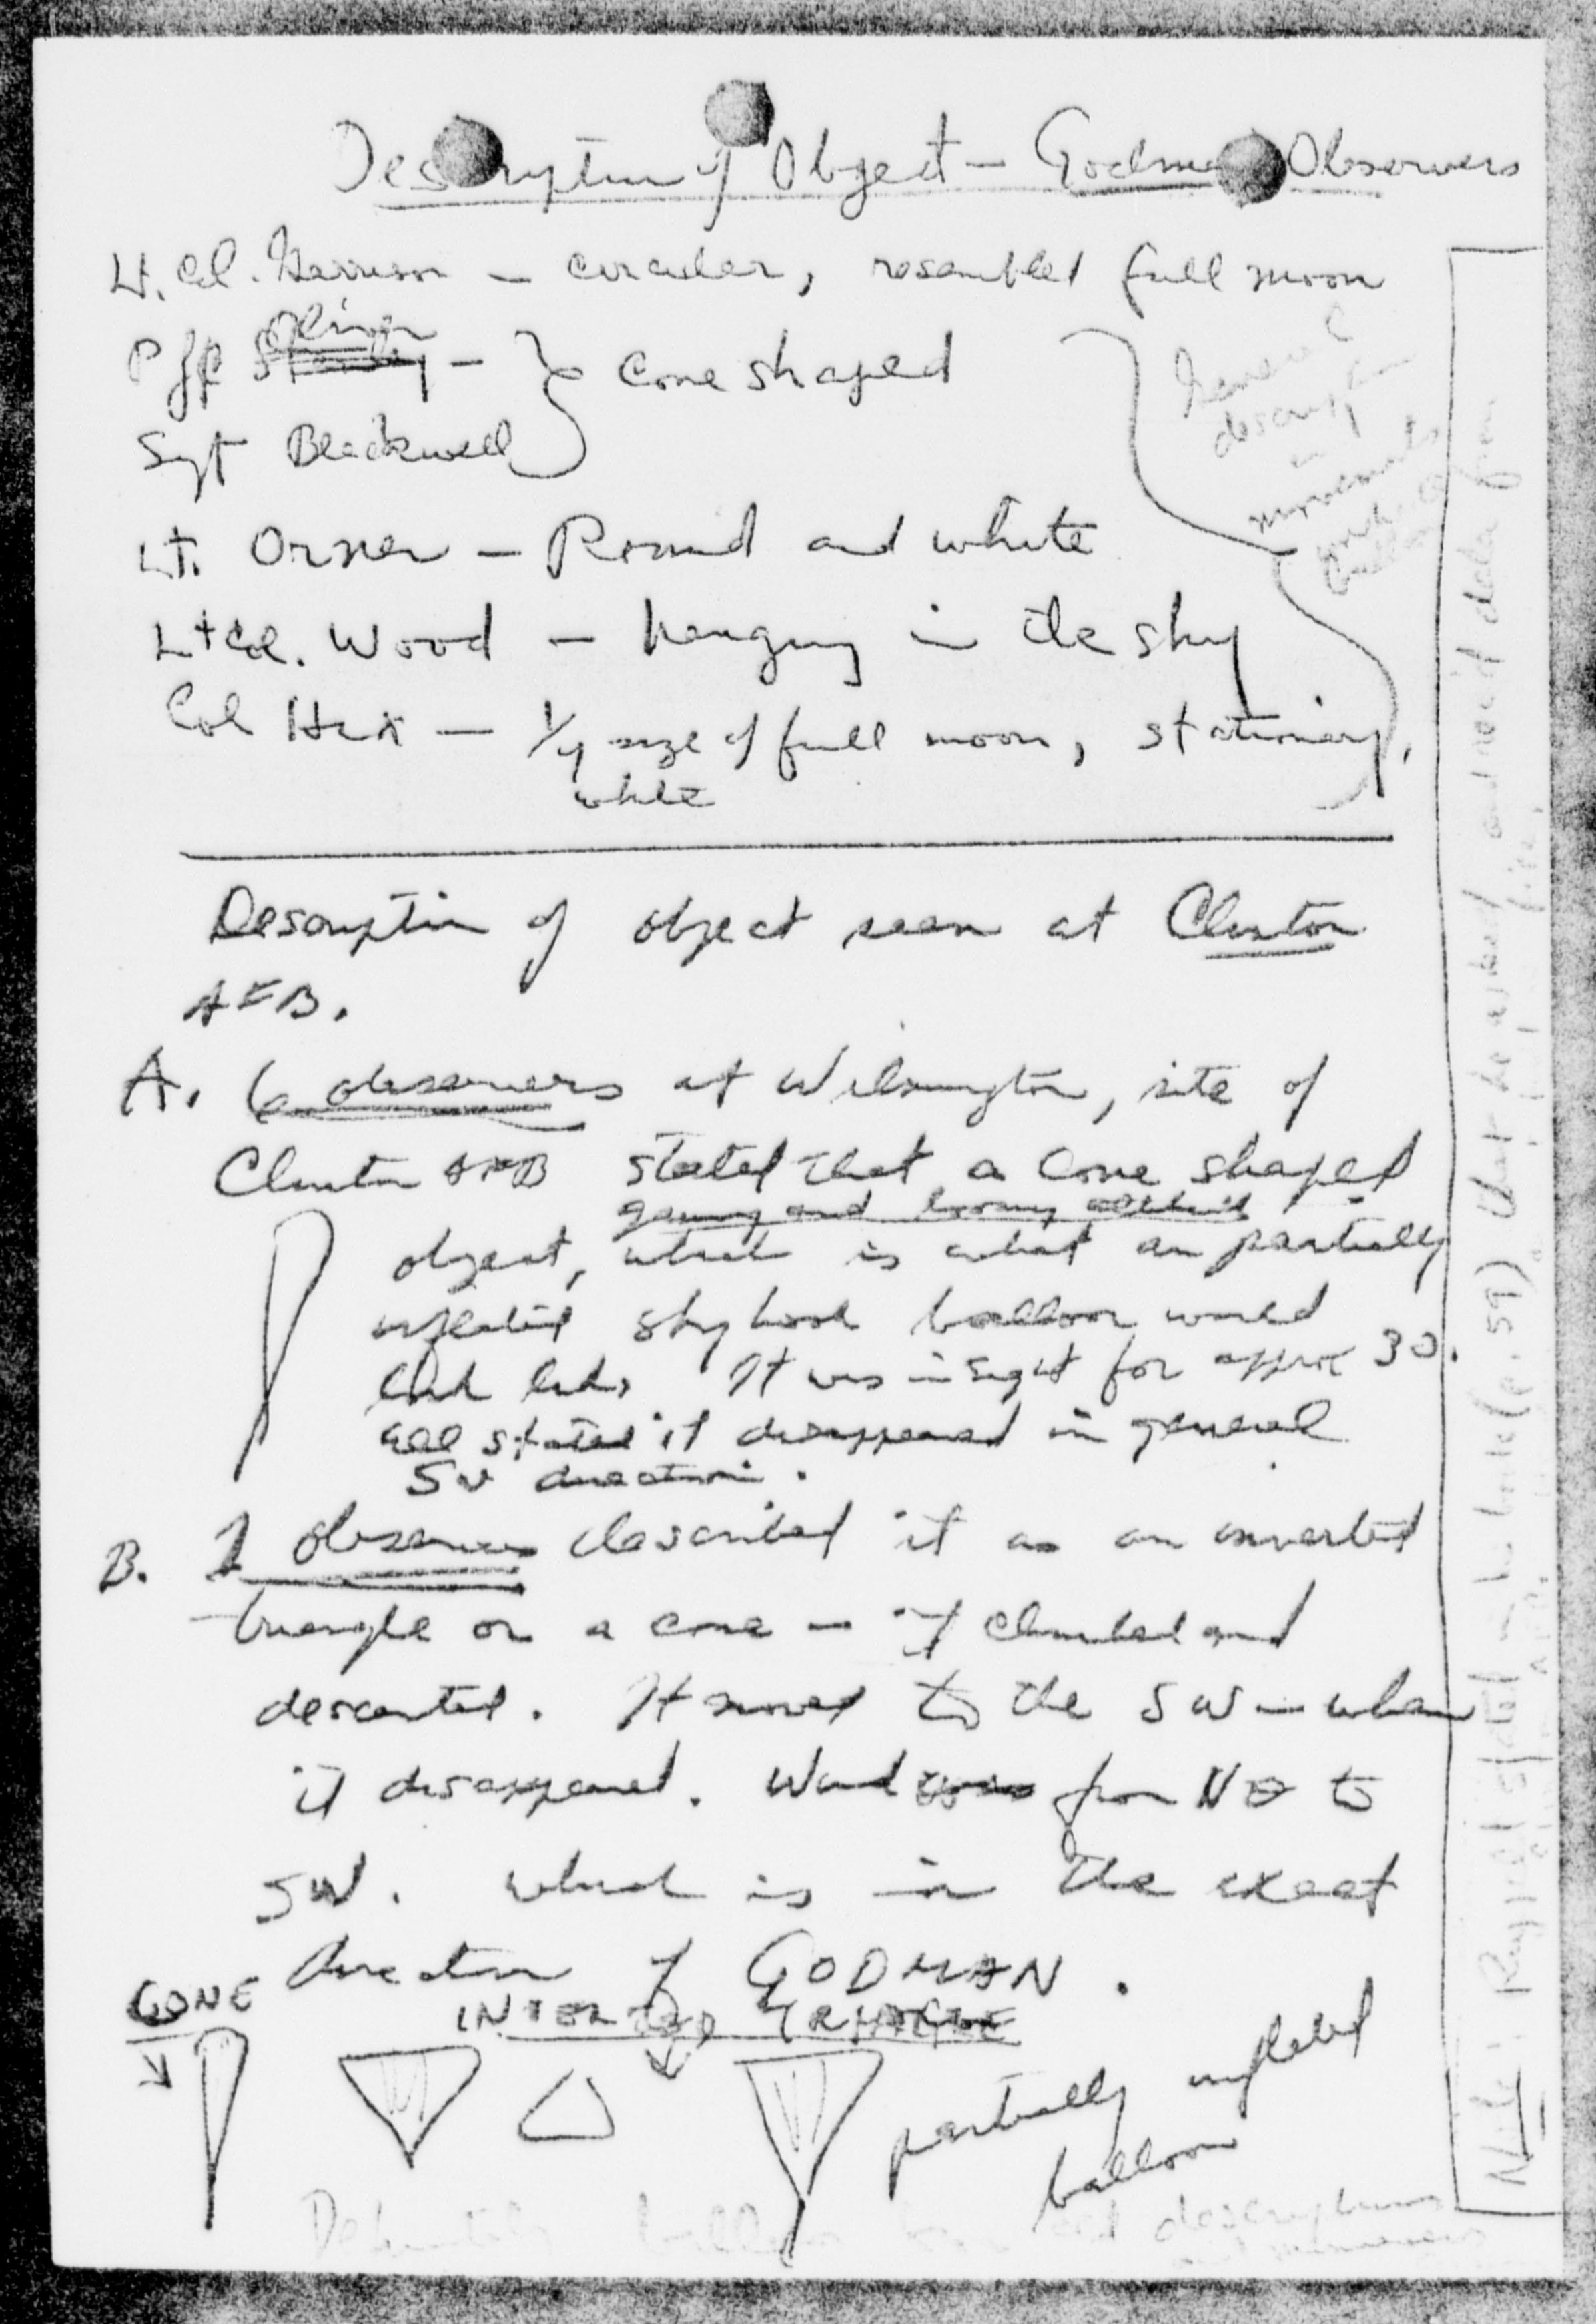 Description of Object - Godman Observers
Lt. Col. Garrison - circular, resembled full moon
Pfc Oliver - } cone shaped
Sgt Blackwell
Lt. Orner - Round and white
Lt Col. Wood - hanging in the sky
Col Hix - 1/4 size of full moon, stationary,
white
General
description
movements
Description of object seen at Clinton
AFB.
A. 6 observers at Wilmington, site of
Clinton AFB stated that a cone shaped
gaining and losing altitude
object, which is what an partially
inflated skyhook balloon would
look like. It was in sight for approx 30.
all stated it disappeared in general
SW direction.
B. 2 observers described it as an inverted
triangle or a cone - it climbed and
descented. It moved to the SW - when
it disappeared. Wind was from NE to
SW. which is in the exact
direction of GODMAN.
CONE
INVERTED TRIANGLE
partially inflated
balloon
Definitely balloon descriptions
Note: